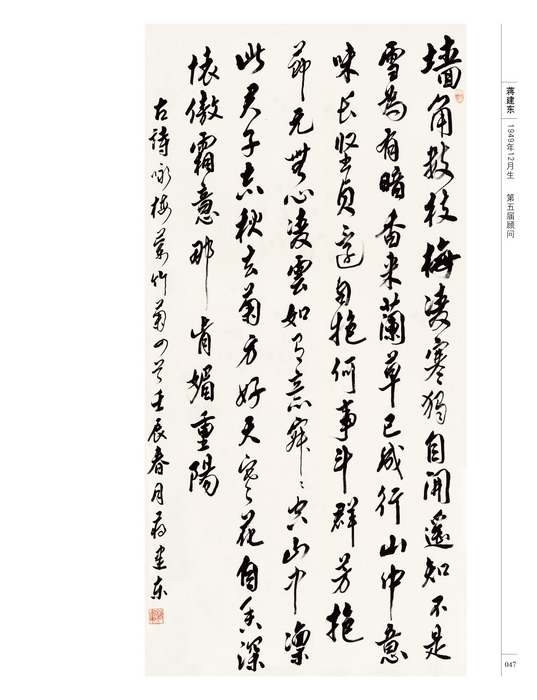 墙角数枝梅凌寒獨自開遥知不是
雪為有暗香来蘭草已成行山中意
味长坚贞还自抱何事斗群芳抱
節元無心凌雲如有意寂寂空山中凛
此君子志秋去菊方好天寒花自香深
懐傲霜意那肯媚重陽
古詩咏梅蘭竹菊四首壬辰春月蒋建东
蒋建东
1949年12月生 第五届顾问
047